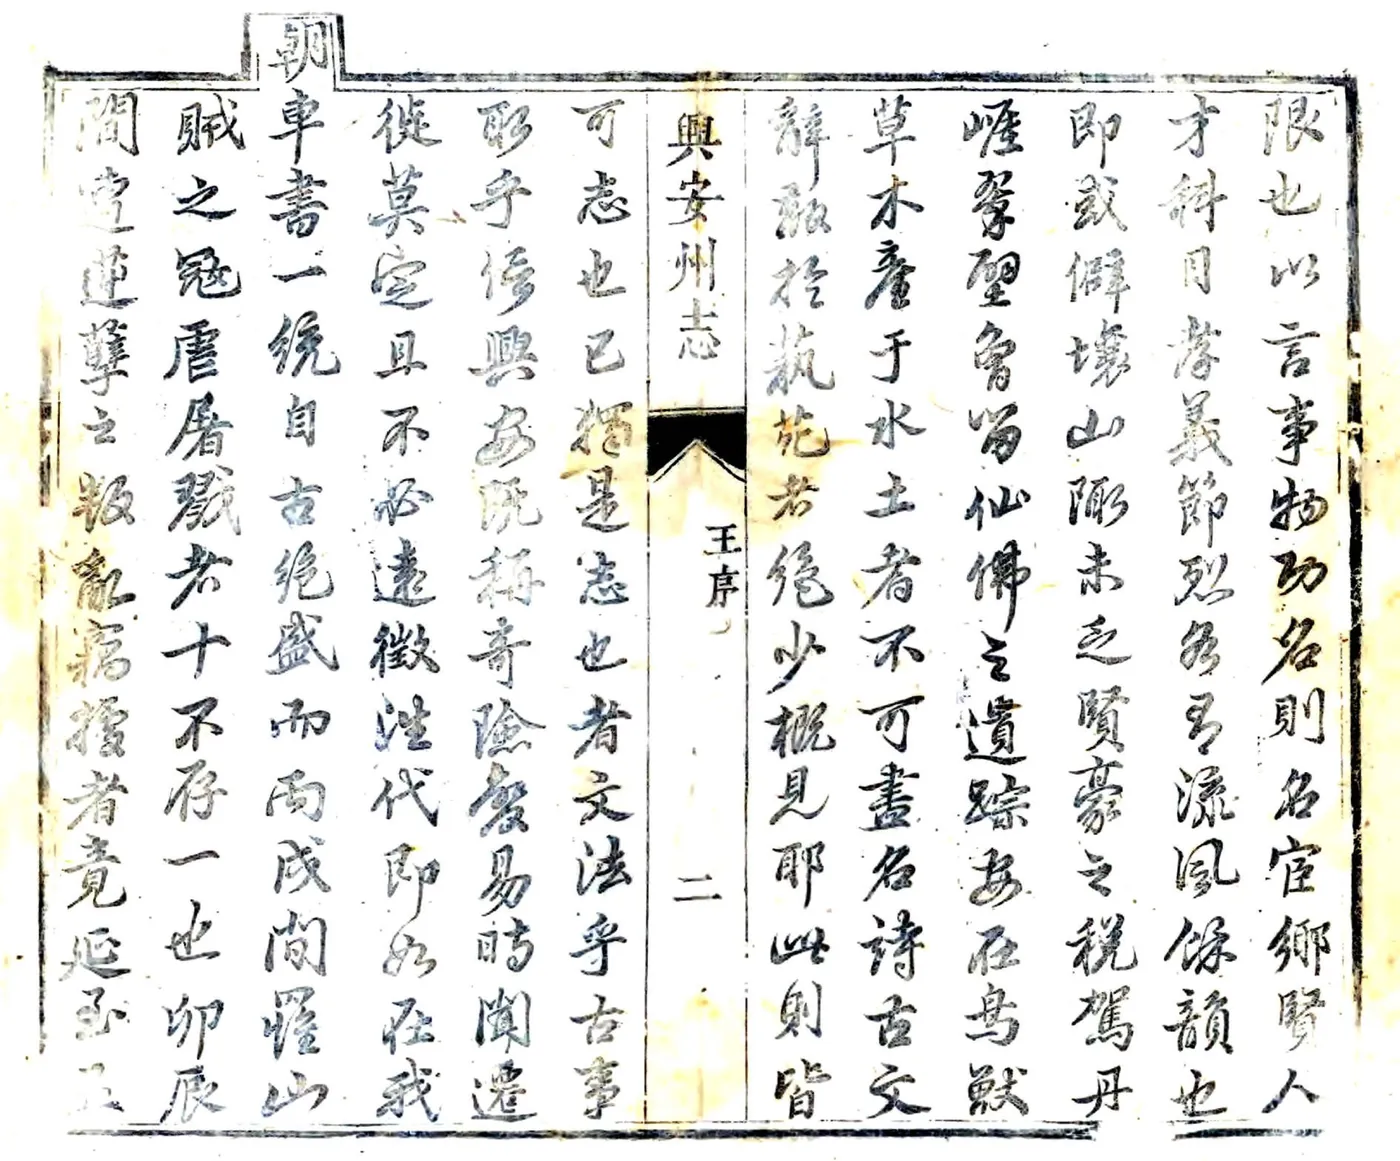 限也以言事物功名則名宦鄉賢人
才科目孝義節烈各有流風餘韻也
即或僻壤山陬未乏賢豪之税駕丹
崕翠壁曾留仙佛之遺踪安在鳥獸
草木産于水土者不可盡名詩古文
辭敢於執苑者絶少概見耶此則皆
興安州志
王序
二
可志也已猶是志也者文法乎古事
取乎信興安既稱奇險變易時聞遷
徙莫定且不必遠徵往代即如在我
朝
車書一統自古絶盛而丙戌間羅山
賊之冦虐屠戮者十不存一也卯辰
間逆孽之叛亂竊據者竟延至五